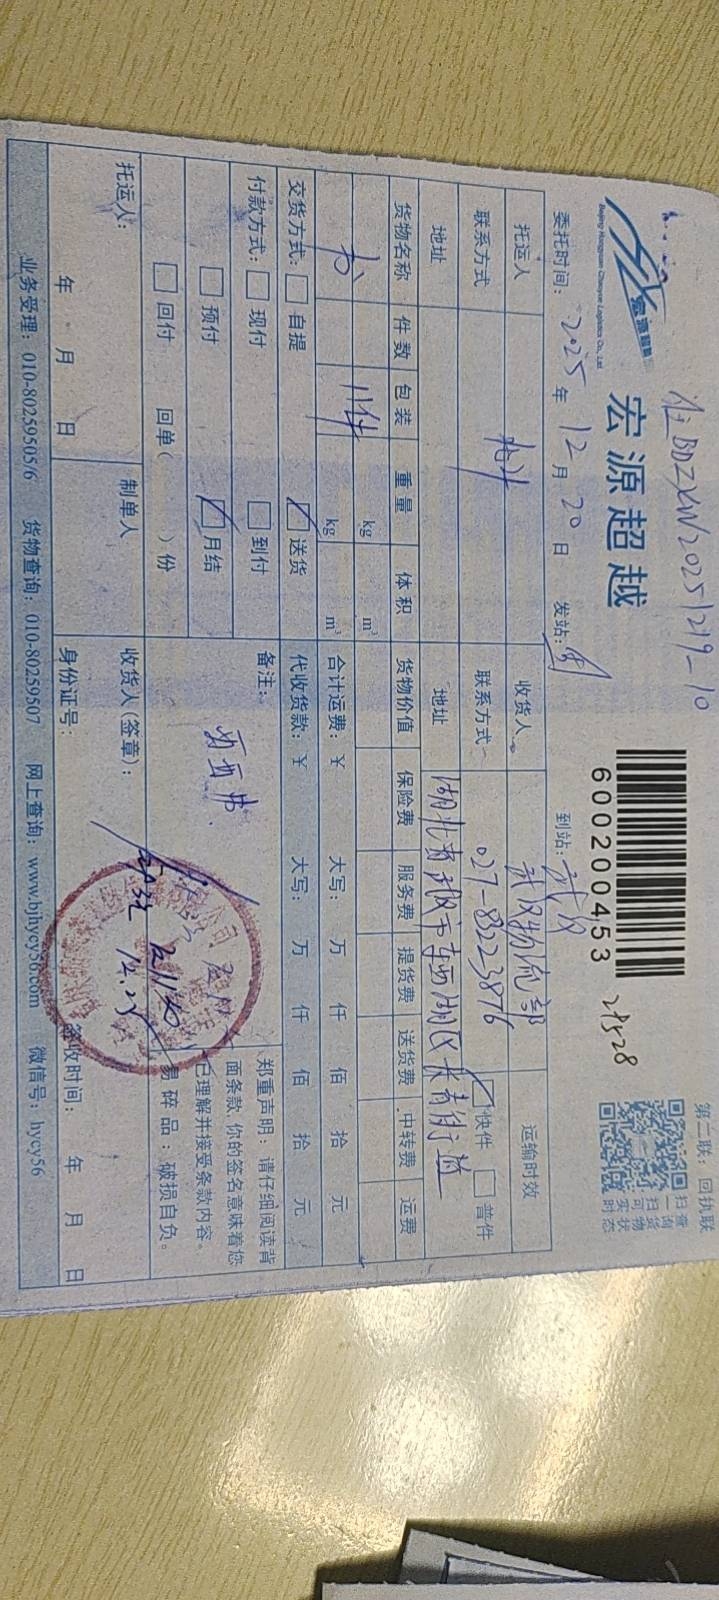 BDZXW20251219-10
宏源超越
Beijing Hongyuan Chaoyue Logistics Co., Ltd
宏源超越
600200453
第二联：回执联
扫一扫可实时
查询货物状态
委托时间：2025年12月20日 发站： 到站：武汉
托运人 收货人 武汉物流部 运输时效
联系方式 联系方式 027-83223876 快件 普件
地址 地址 湖北省武汉市东西湖区
货物名称 件数 包装 重量 体积 货物价值 保险费 服务费 提货费 送货费 中转费 运费
kg m³
书 11件 kg m³ 合计运费：￥ 大写： 万 仟 佰 拾 元
交货方式： 自提 送货 代收货款：￥ 大写： 万 仟 佰 拾 元
付款方式： 现付 到付 备注：
预付 月结
回付 回单（ ）份
郑重声明：请仔细阅读背
面条款，你的签名意味着您
已理解并接受条款内容。
易碎品：破损自负。
托运人： 制单人 收货人（签章）：
12.25
年 月 日 身份证号： 签收时间： 年 月 日
业务受理：010-80259505/6 货物查询：010-80259507 网上查询：www.bjhycy56.com 微信号：hycy56